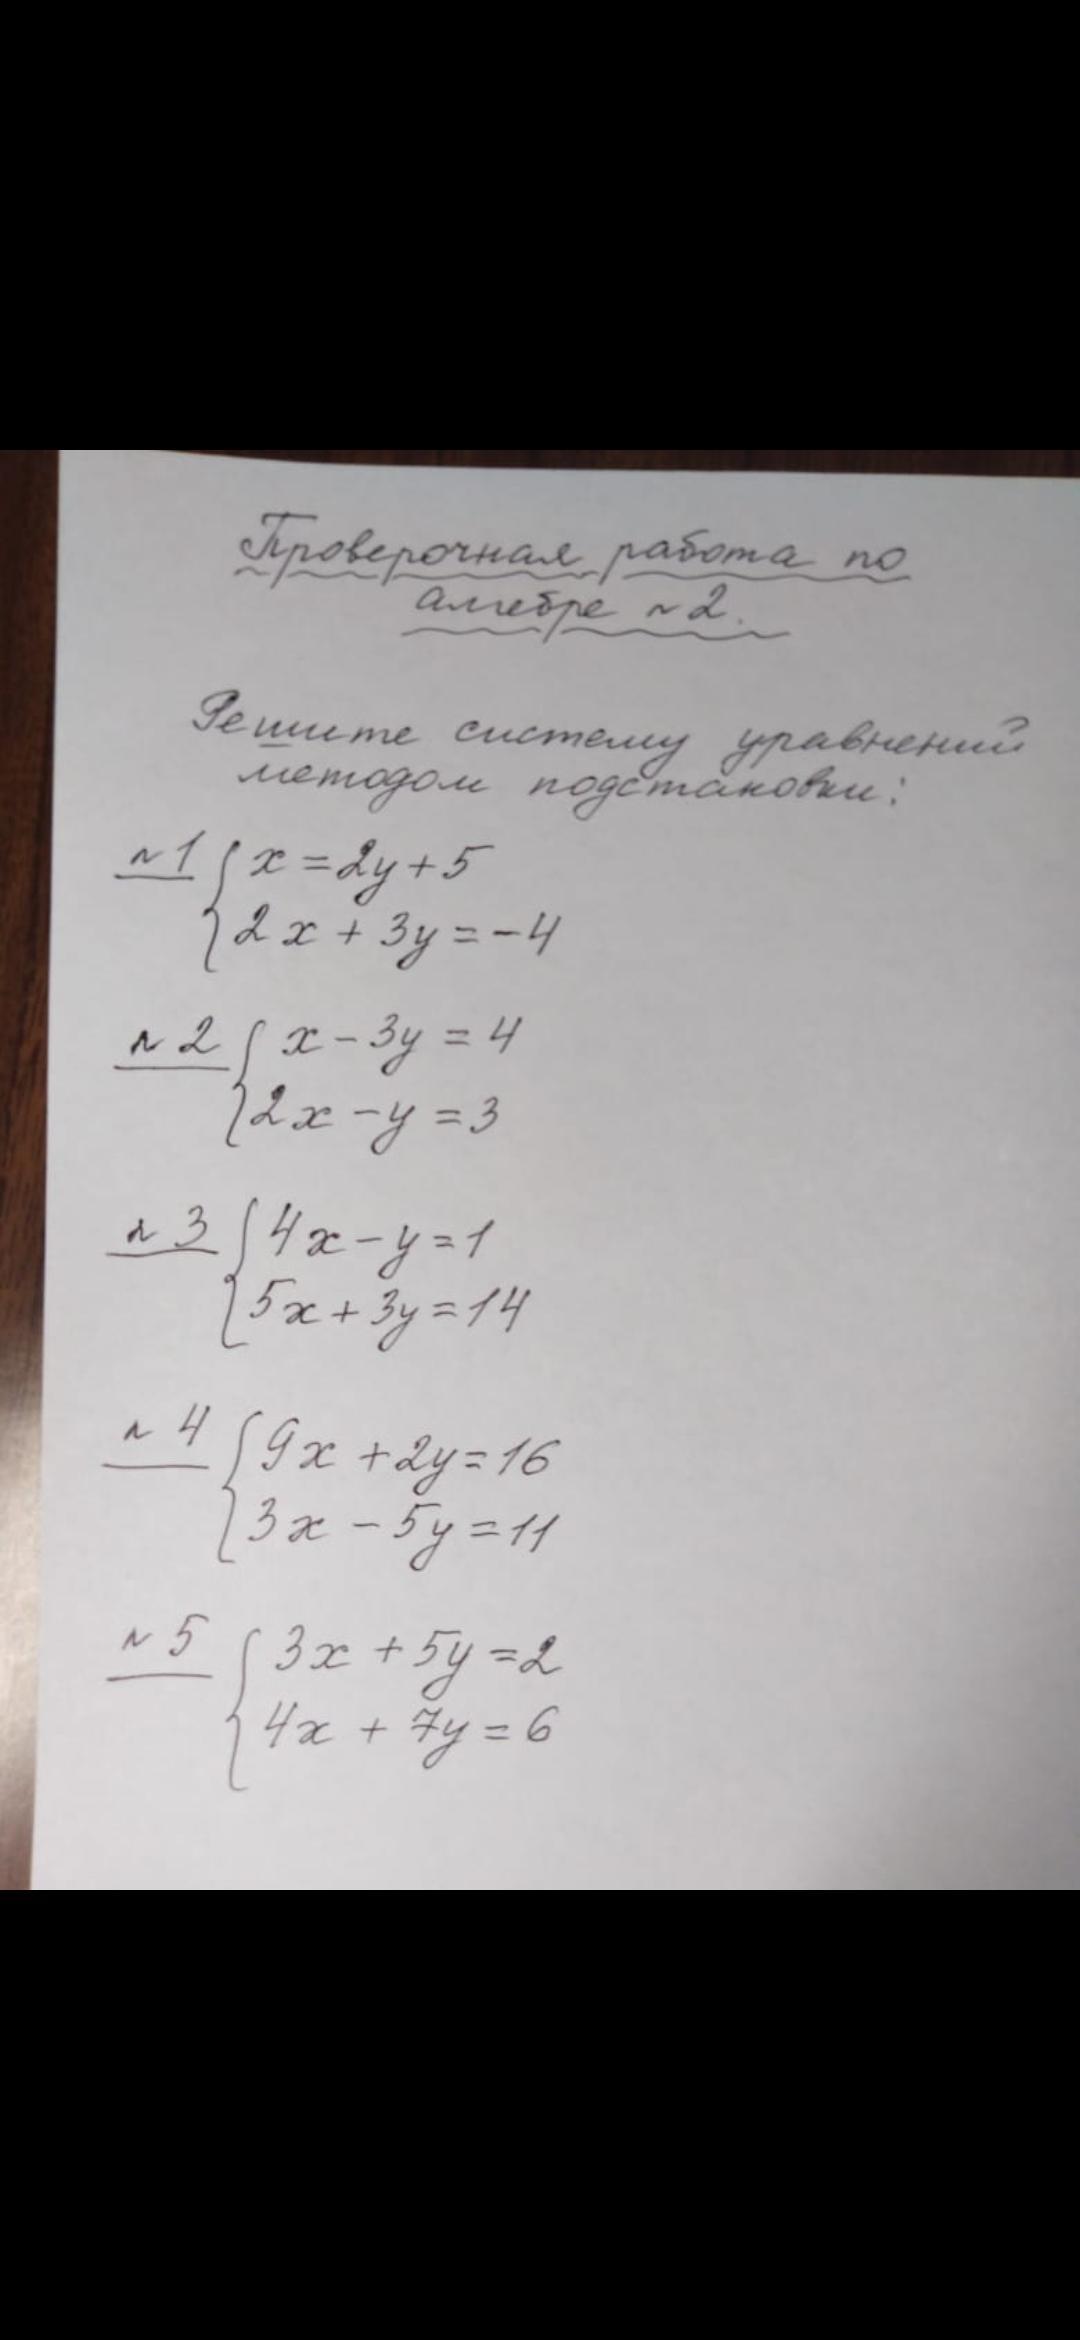 Проверочная работа по
алгебре №2.
Решите систему уравнений
методом подстановки:
№1 { x = 2y + 5
2x + 3y = -4
№2 { x - 3y = 4
2x - y = 3
№3 { 4x - y = 1
5x + 3y = 14
№4 { 9x + 2y = 16
3x - 5y = 11
№5 { 3x + 5y = 2
4x + 7y = 6